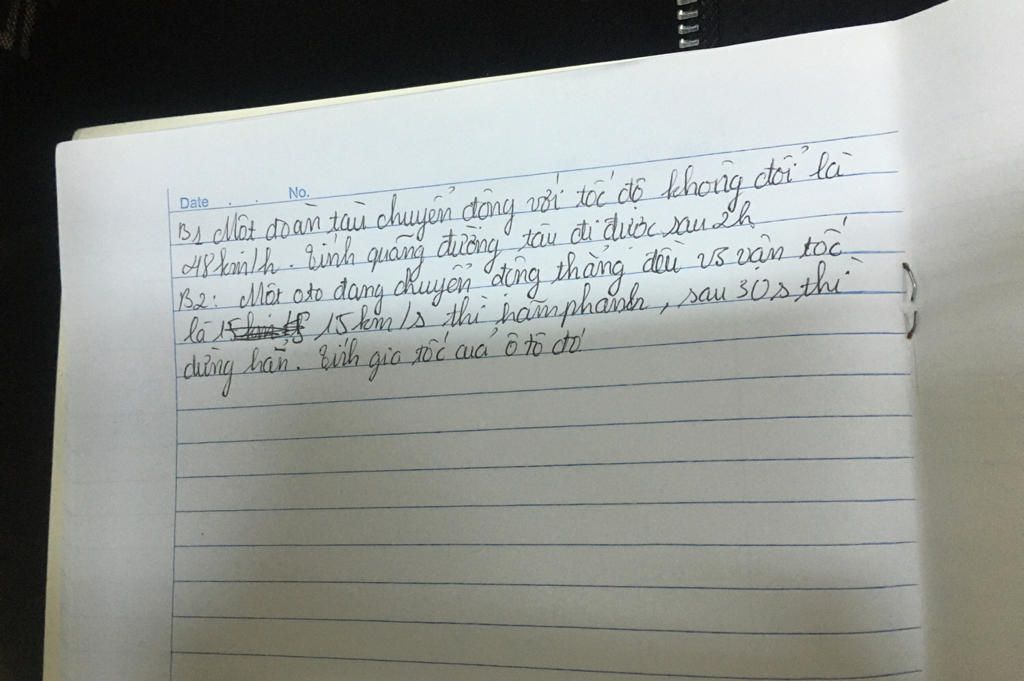 Date . . No.
B1 Một đoàn tàu chuyển động với tốc độ không đổi là
48km/h. Tính quãng đường tàu đi được sau 2h
B2: Một oto đang chuyển động thẳng đều vs vận tốc
là 15km/s thì hãm phanh, sau 30s thì
dừng hẳn. Tính gia tốc của ô tô đó